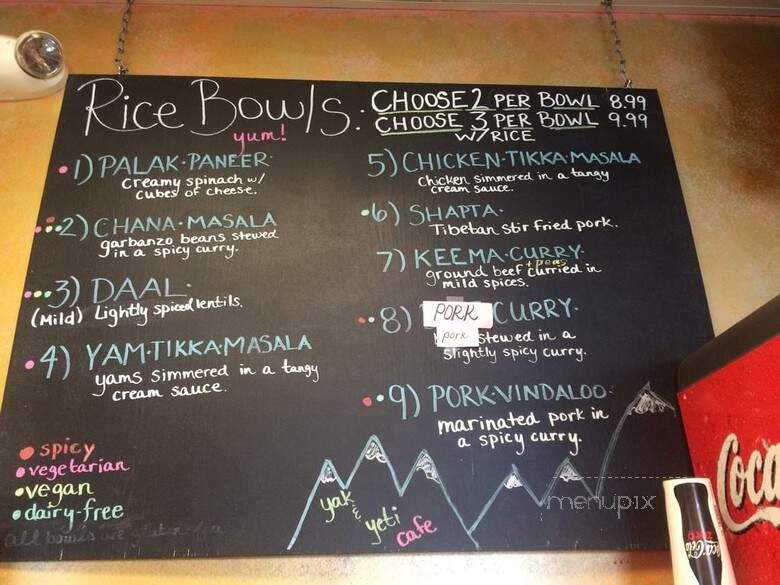 Rice Bowls:
yum!
CHOOSE 2 PER BOWL 8.99
CHOOSE 3 PER BOWL 9.99
W/RICE
1) PALAK·PANEER·
creamy spinach w/
cubes of cheese.
2) CHANA·MASALA
garbanzo beans stewed
in a spicy curry.
3) DAAL·
(Mild) Lightly spiced lentils.
4) YAM·TIKKA·MASALA
yams simmered in a tangy
cream sauce.
5) CHICKEN·TIKKA·MASALA
Chicken simmered in a tangy
cream sauce.
6) SHAPTA·
Tibetan stir fried pork.
7) KEEMA·CURRY·
+ peas
ground beef curried in
mild spices.
8) PORK CURRY·
pork stewed in a
slightly spicy curry.
9) PORK·VINDALOO·
marinated pork in
a spicy curry.
spicy
vegetarian
vegan
dairy-free
all bowls are gluten-free
yak
&
yeti
cafe
menupix
Coca
Coca-Cola
zero